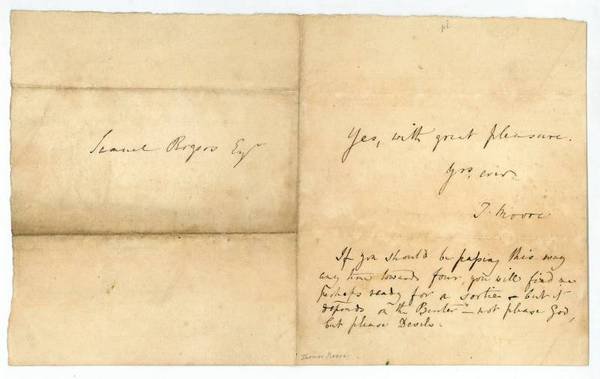 Samuel Rogers Esqr
Yes, with great pleasure.
Yrs ever
T. Moore
If you should be passing this way
any time towards four you will find me
perhaps ready for a sortie - but it
depends on the Printer - not please God,
but please Devils.
Thomas Moore